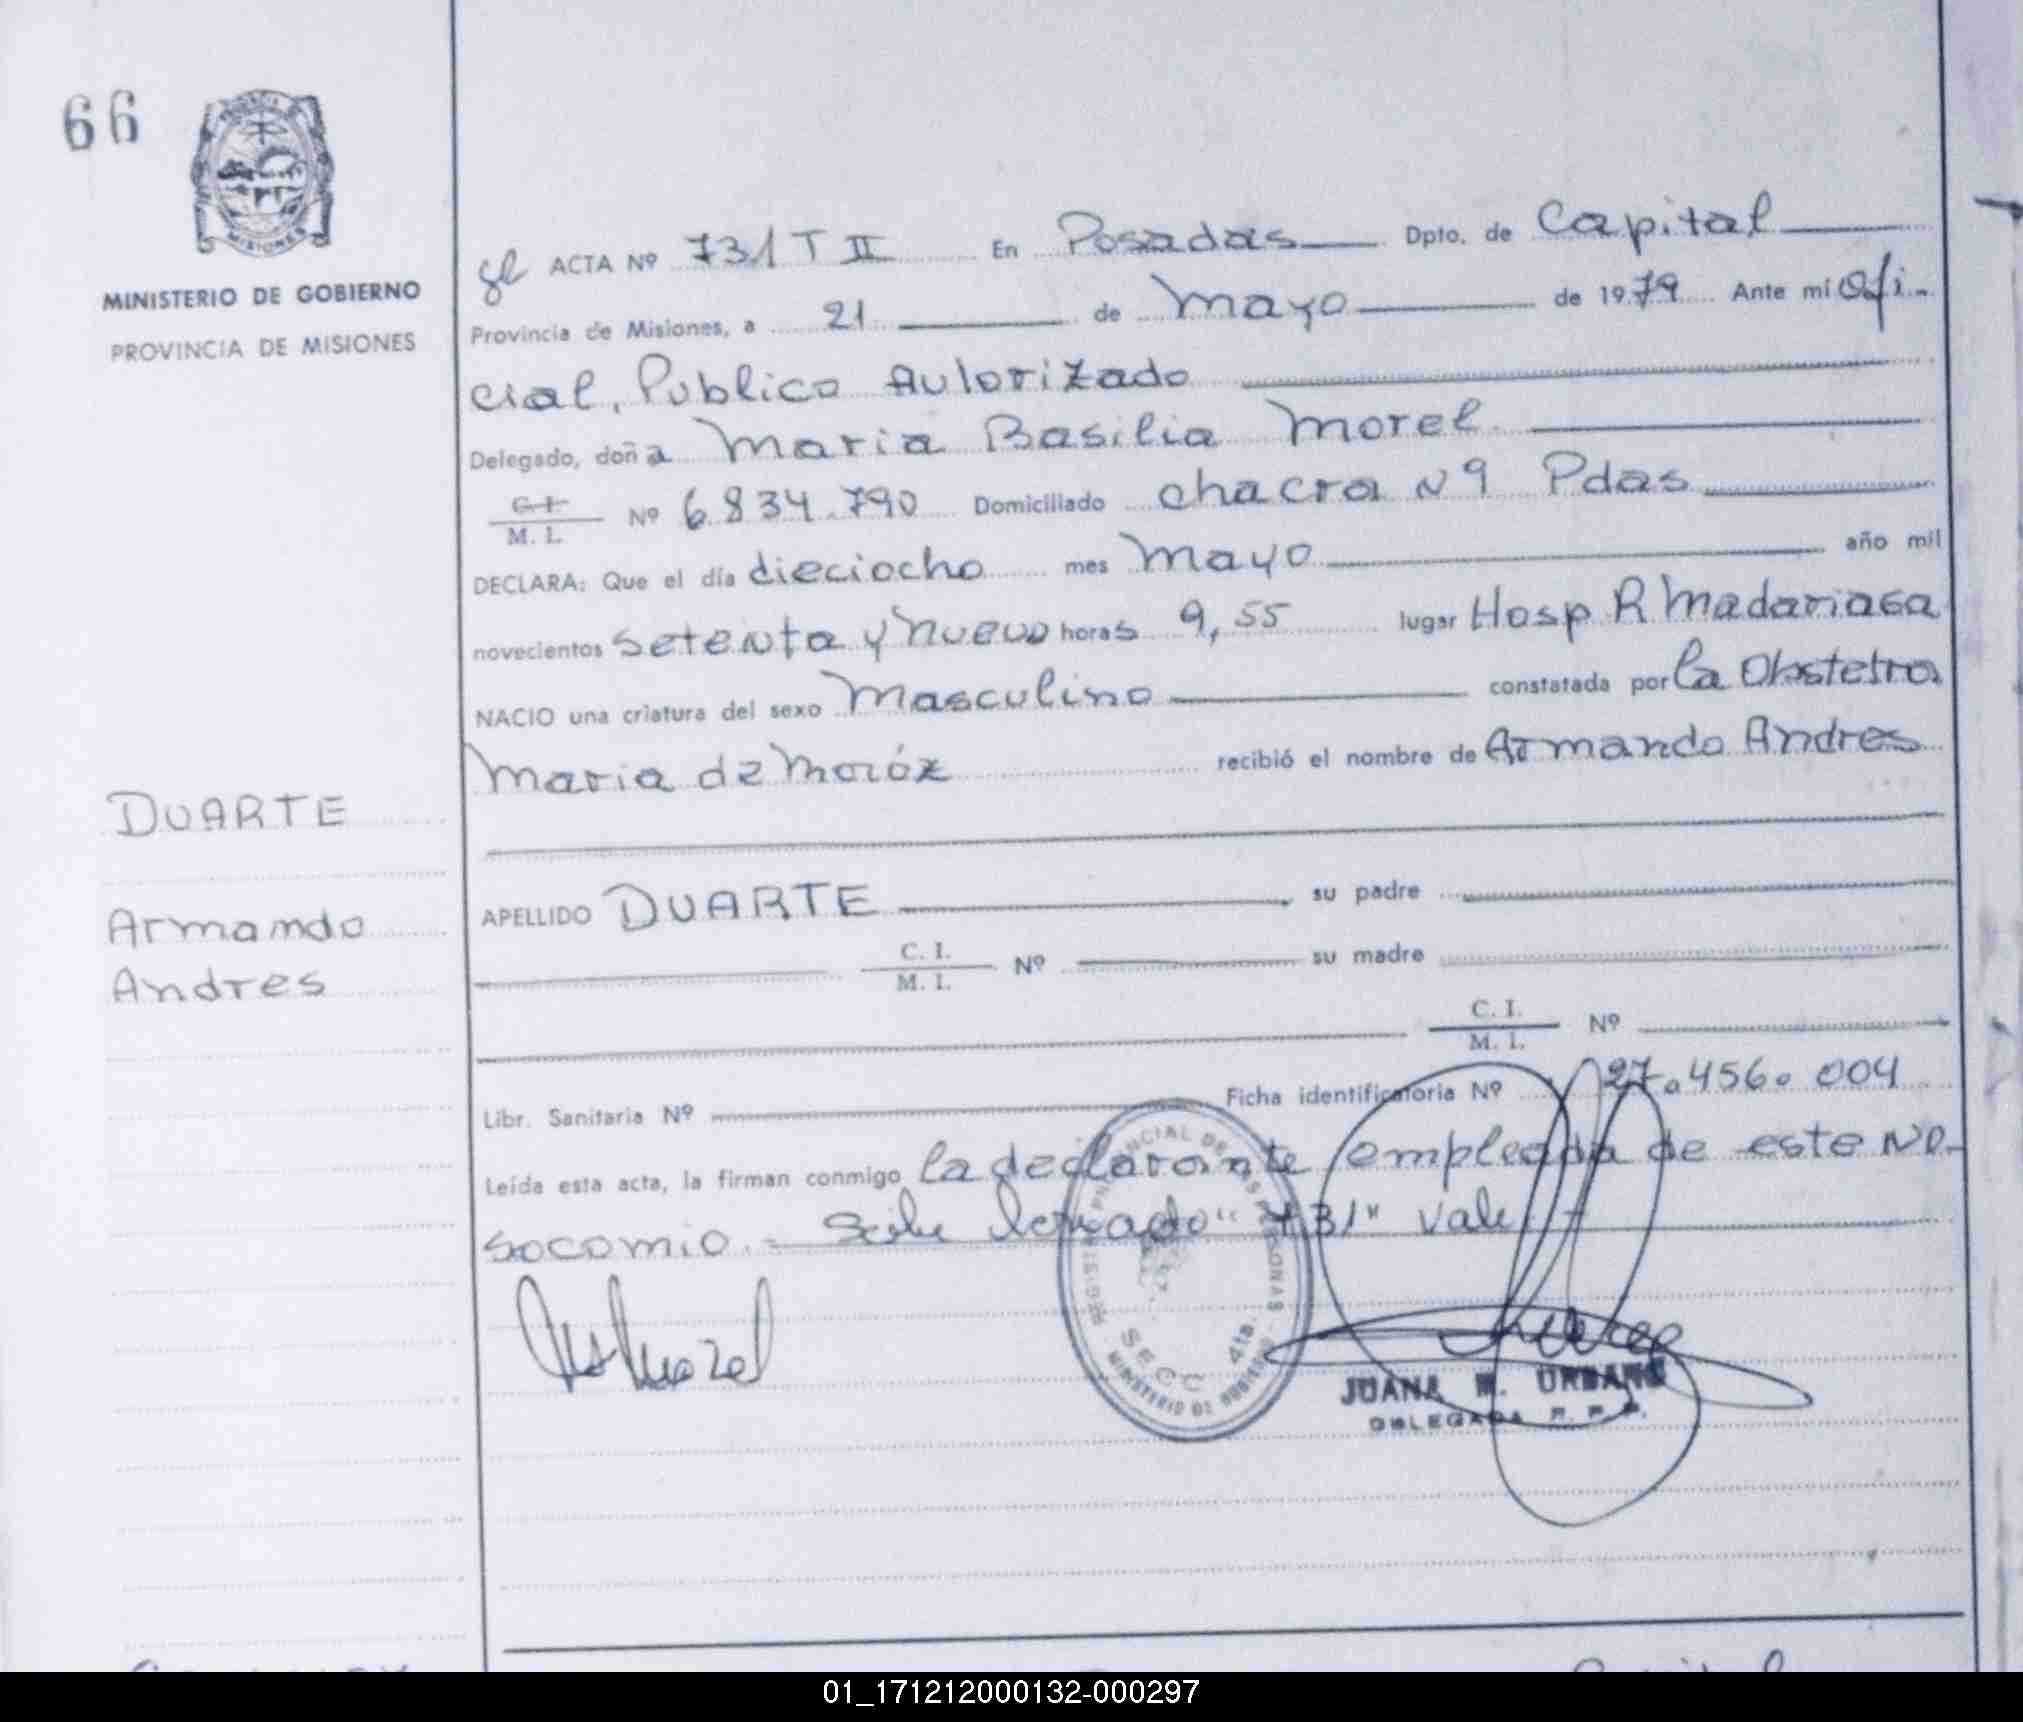 66
MINISTERIO DE GOBIERNO
PROVINCIA DE MISIONES
ACTA Nº 731 T II En Posadas Dpto. de Capital
Provincia de Misiones, a 21 de Mayo de 1979 Ante mi Ofi-
cial, Publico Autorizado
Delegado, doña Maria Basilia Morel
C. I.
M. I. Nº 6.834.790 Domiciliado chacra N 9 Pdas
DECLARA: Que el día dieciocho mes Mayo año mil
novecientos setenta y nueve horas 9,55 lugar Hosp R Madariaga
NACIO una criatura del sexo Masculino constatada por la Obstetra
Maria de Moróz recibió el nombre de Armando Andres
DUARTE
Armando
Andres
APELLIDO DUARTE su padre
C. I.
M. I. Nº su madre
C. I.
M. I. Nº
Libr. Sanitaria Nº Ficha identificatoria Nº 27.456.004
Leída esta acta, la firman conmigo la declarante empleada de este No-
socomio.- "731" vale
REGISTRO PROVINCIAL DE LAS PERSONAS
SECC 4ta.
MINISTERIO DE GOBIERNO
JUANA M. URBANO
DELEGADA R. P. P.
01_171212000132-000297